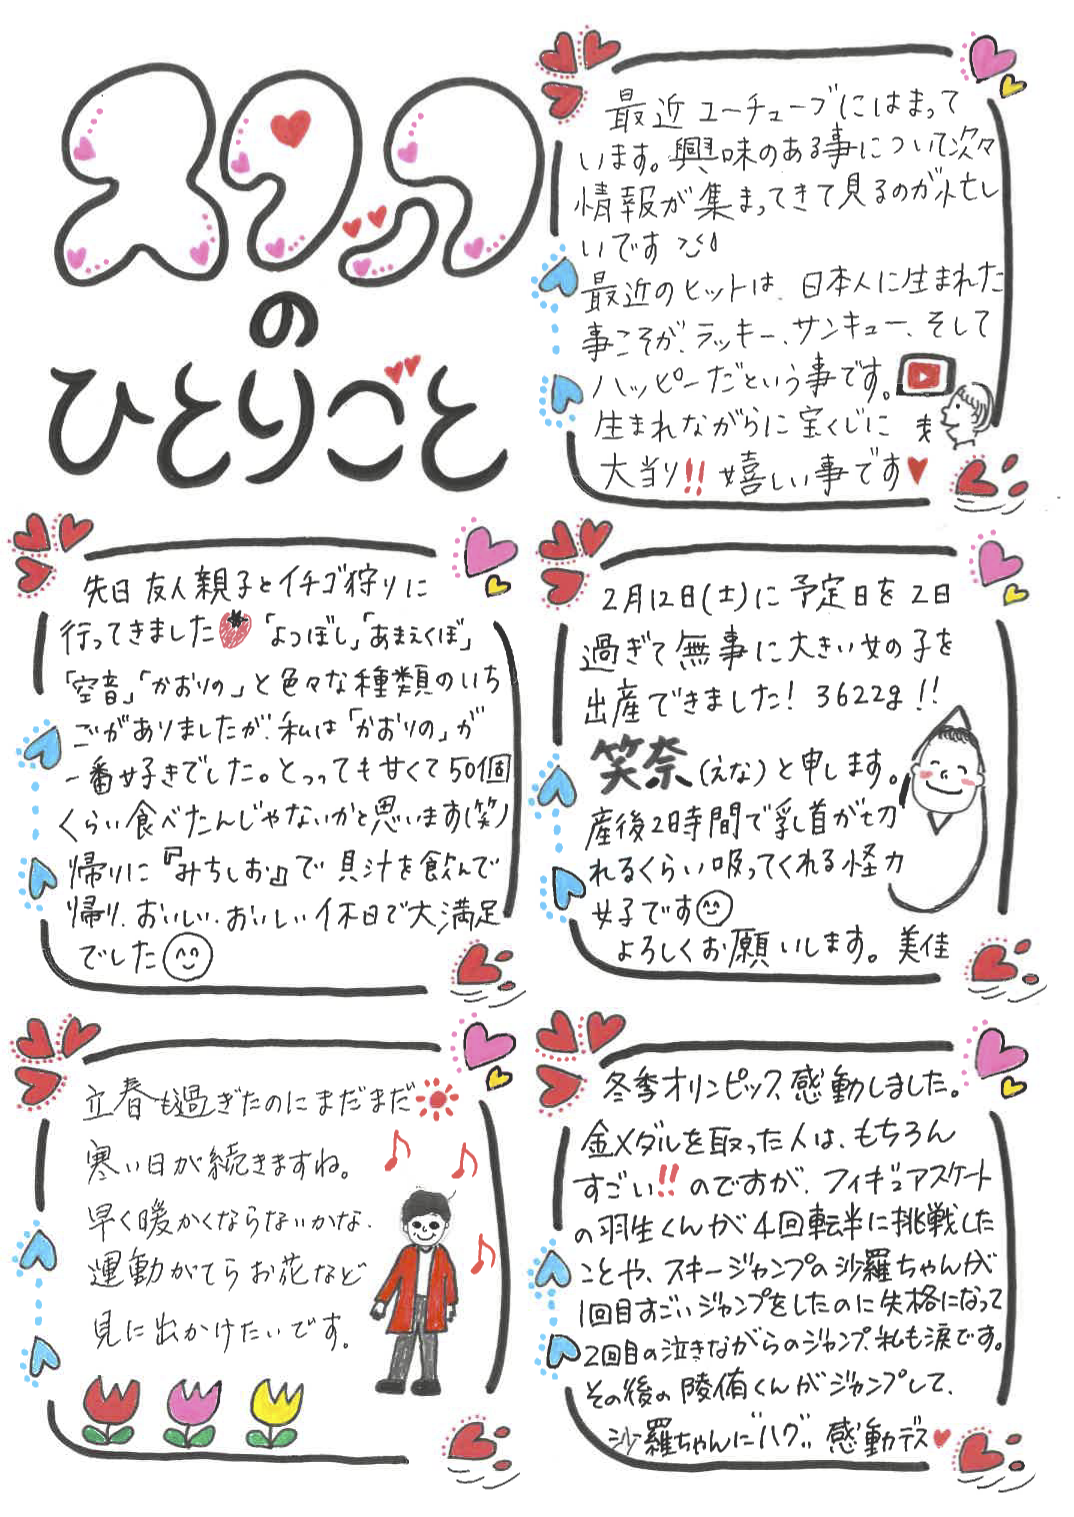 スタッフ
の
ひとりごと
最近ユーチューブにはまって
います。興味のある事について次々
情報が集まってきて見るのが忙し
いです
最近のヒットは、日本人に生まれた
事こそが、ラッキー、サンキュー、そして
ハッピーだという事です。
生まれながらに宝くじに
大当り!! 嬉しい事です♥
先日友人親子とイチゴ狩りに
行ってきました「よつぼし」「あまえくぼ」
「空音」「かおりの」と色々な種類のいち
ごがありましたが、私は「かおりの」が
一番好きでした。とっっても甘くて50個
くらい食べたんじゃないかと思います(笑)
帰りに『みちしお』で貝汁を飲んで
帰り、おいしい、おいしい休日で大満足
でした
2月12日(土)に予定日を2日
過ぎて無事に大きい女の子を
出産できました! 3622g!!
笑奈(えな)と申します。
産後2時間で乳首が切
れるくらい吸ってくれる怪力
女子です
よろしくお願いします。 美佳
立春も過ぎたのにまだまだ
寒い日が続きますね。
早く暖かくならないかな、
運動がてらお花など
見に出かけたいです。
冬季オリンピック感動しました。
金メダルを取った人は、もちろん
すごい!!のですが、フィギュアスケート
の羽生くんが4回転半に挑戦した
ことや、スキージャンプの沙羅ちゃんが
1回目すごいジャンプをしたのに失格になって
2回目の泣きながらのジャンプ、私も涙です。
その後の陵侑くんがジャンプして、
沙羅ちゃんに"ハグ"感動デス♥